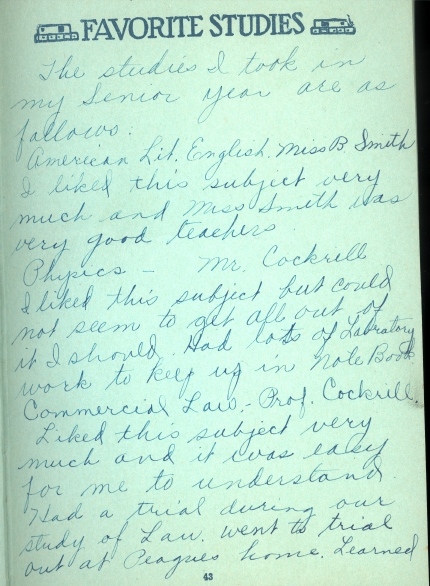 FAVORITE STUDIES
The studies I took in
my Senior year are as
follows:
American Lit. English. Miss B. Smith
I liked this subject very
much and Miss Smith was
very good teachers
Physics - Mr. Cockrill
I liked this subject but could
not seem to get all out of
it I should. Had lots of Labratory
work to keep up in Note Book
Commercial Law,- Prof. Cockrill.
Liked this subject very
much and it was easy
for me to understand.
Had a trial during our
study of Law. went to trial
out at Peagues home. Learned
43